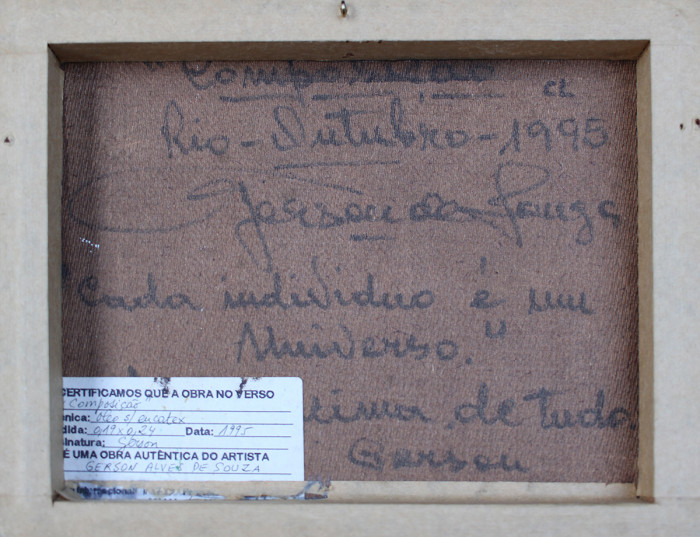 "Composição
CL
Rio - Outubro - 1995
Gerson de Souza
"Cada individuo é um
Universo."
acima de tudo
Gerson
CERTIFICAMOS QUE A OBRA NO VERSO
Composição"
nica: óleo s/ eucatex
dida: 0,19 x 0,24 Data: 1995
inatura: Gerson
É UMA OBRA AUTÊNTICA DO ARTISTA
GERSON ALVES DE SOUZA